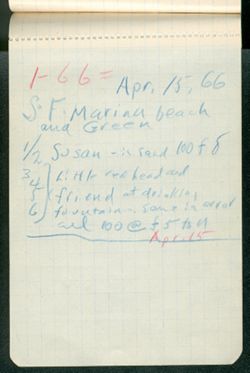 1-66 = Apr. 15, 66
S. F. Marina beach
and Green
1/2 Susan - in sand 100 f 8
3 Little redhead and
4
5 friend at drinking
6 fountain - same in
and 100 @ f 5 to 4
Apr. 15